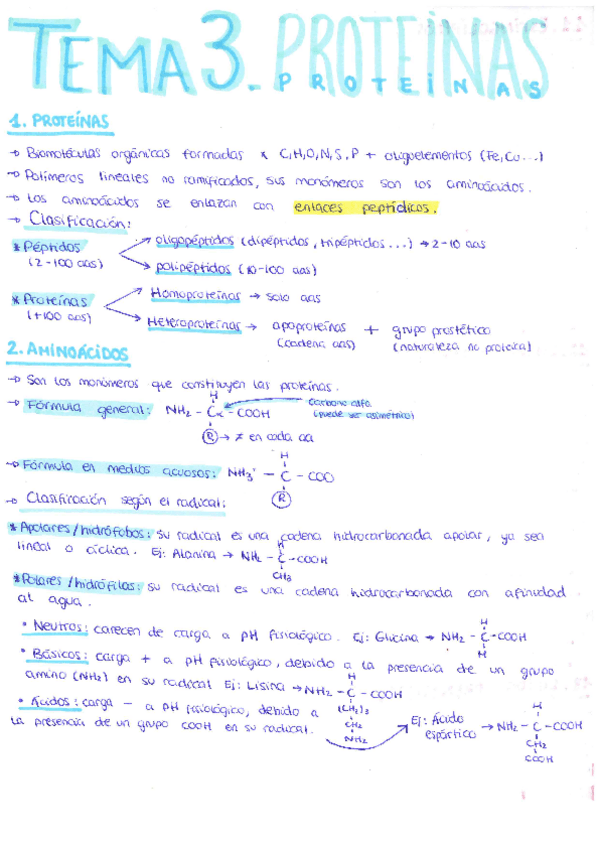 TEMA 3. PROTEINAS
PROTEINAS
1. PROTEÍNAS
→ Biomoléculas orgánicas formadas x C, H, O, N, S, P + oligoelementos (Fe, Cu...)
→ Polímeros lineales no ramificados, sus monómeros son los aminoácidos.
→ Los aminoácidos se enlazan con enlaces peptídicos.
→ Clasificación:
* Péptidos (2-100 aas)
oligopéptidos (dipéptidos, tripéptidos...) → 2-10 aas
polipéptidos (10-100 aas)
* Proteínas (+100 aas)
Homoproteínas → solo aas
Heteroproteínas → apoproteínas (cadena aas) + grupo prostético (naturaleza no proteica)
2. AMINOÁCIDOS
→ Son los monómeros que constituyen las proteínas.
H
→ Fórmula general: NH₂ - Cα - COOH
carbono alfa (puede ser asimétrico)
R → ≠ en cada aa
H
→ Fórmula en medios acuosos: NH₃⁺ - C - COO
R
→ Clasificación según el radical:
* Apolares / hidrófobos: su radical es una cadena hidrocarbonada apolar, ya sea
lineal o cíclica. Ej: Alanina → NH₂ - C - COOH
H
CH₃
* Polares / hidrófilas: su radical es una cadena hidrocarbonada con afinidad
al agua.
• Neutros: carecen de carga a pH fisiológico. Ej: Glicina → NH₂ - C - COOH
H
H
• Básicos: carga + a pH fisiológico, debido a la presencia de un grupo
amino (NH₂) en su radical Ej: Lisina → NH₂ - C - COOH
H
(CH₂)₃
CH₂
NH₂
• Ácidos: carga - a pH fisiológico, debido a
la presencia de un grupo COOH en su radical.
Ej: Ácido espártico → NH₂ - C - COOH
H
CH₂
COOH